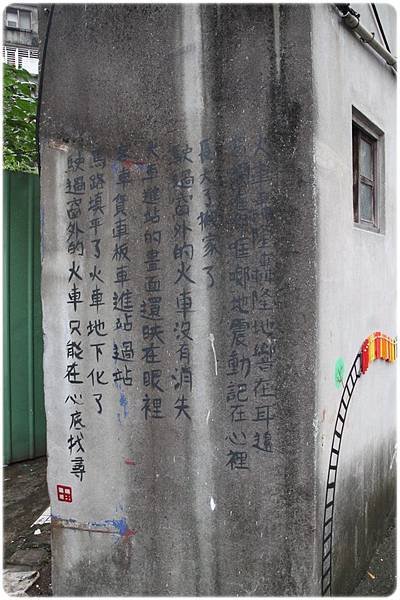 火車轟隆轟隆地響在耳邊
哐啷哐啷地震動記在心裡
長大了搬家了
駛過窗外的火車沒有消失
火車進站的畫面還映在眼裡
客車貨車板車進站過站
馬路填平了火車地下化了
駛過窗外的火車只能在心底找尋